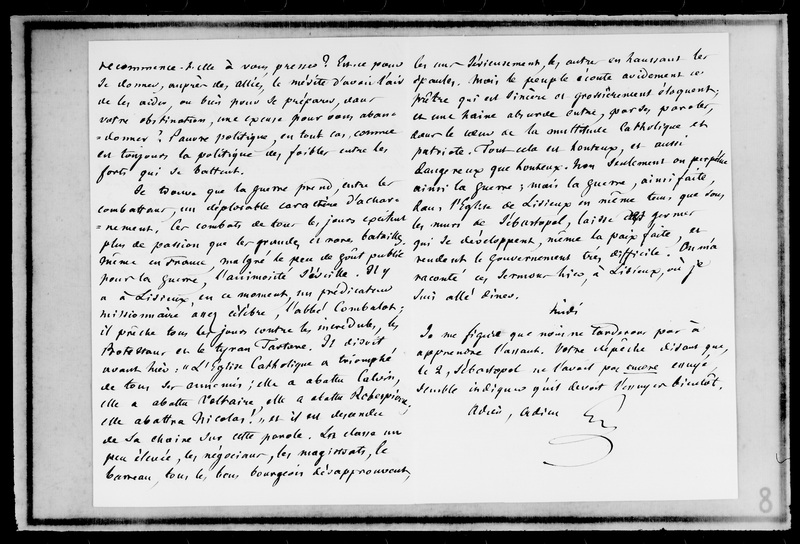 recommence-t-elle à vous presser ? Est-ce pour
se donner, auprès des alliés, le mérite d'avoir l'air
de les aider, ou bien pour se préparer, dans
votre obstination, une excuse pour vous aban=
=donner ? Pauvre politique, en tout cas, comme
est toujours la politique des faibles entre les
forts qui se battent.
Je trouve que la guerre prend, entre les
combattans, un déplorable caractère d'achar=
=nement ; les combats de tous les jours excitent
plus de passion que les grandes et rares batailles.
même en France, malgré le peu de goût public
pour la guerre, l'animosité s'éveille. Il y
a à Lisieux, en ce moment, un prédicateur
missionnaire assez célèbre, l'abbé Combalot ;
il prêche tous les jours contre les incrédules, les
Protestans et le tyran Tartare. Il disoit
avant hier : "L'Eglise Catholique a triomphé
de tous ses ennemis ; elle a abattu Calvin,
elle a abattu Voltaire, elle a abattu Robespierre,
elle abattra Nicolas !" et il est descendu
de sa chaire sur cette parole. Les classes un
peu élevées, les négocians, les magistrats, le
barreau, tous les bons bourgeois désapprouvent,
les uns sérieusement, les autres en haussant les
épaules. Mais le peuple écoute avidement ce
prêtre qui est sincère et grossièrement éloquent ;
et une haine absurde entre, par ses paroles,
dans le cœur de la multitude Catholique et
patriote. Tout cela est honteux, et aussi
dangereux que honteux. Non seulement on perpétue
ainsi la guerre ; mais la guerre, ainsi faite,
dans l'Eglise de Lisieux en même tems que sous
les murs de Sébastopol, laisse germer
qui se développent, même la paix faite, et
rendent le gouvernement très difficile. On m'a
raconté ces sermons hier, à Lisieux, où je
suis allé diner.
Midi
Je me figure que nous ne tarderons pas à
apprendre l'assaut. Votre dépêche disant que,
le 2, Sébastopol ne l'avait pas encore essuyé,
semble indiquer qu'il devoit l'essuyer bientôt.
Adieu, Adieu
8